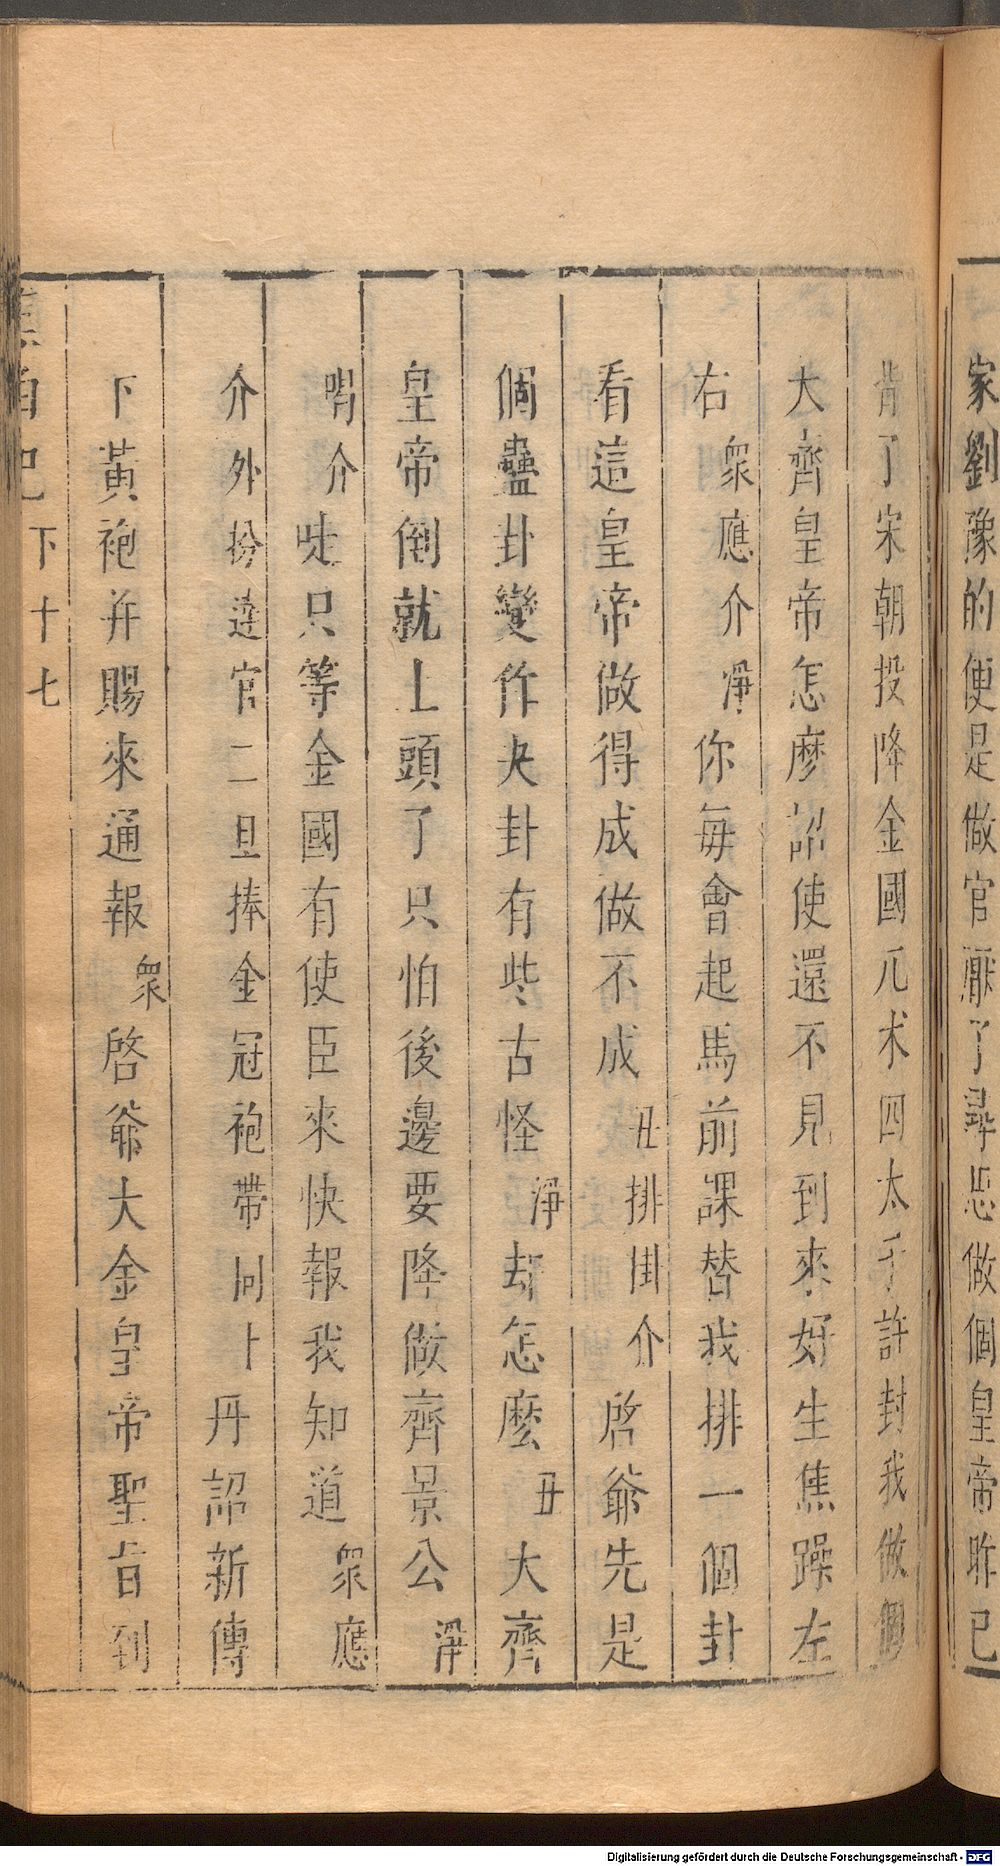 家劉豫的便是做官厭了尋思做個皇帝昨已
背了宋朝投降金國兀朮四太子許封我做個
大齊皇帝怎麼詔使還不見到來好生焦躁左
右衆應介淨你每會起馬前課替我排一個卦
看這皇帝做得成做不成丑排掛介啓爺先是
個蠱卦變作夬卦有些古怪淨却怎麽丑大齊
皇帝倒就上頭了只怕後邊要降做齊景公淨
喝介唗只等金國有使臣來快報我知道衆應
介外扮達官二旦捧金冠袍帶同上丹詔新傳
下黃袍并賜來通報衆啓爺大金皇帝聖旨到
下十七
Digitalisierung gefördert durch die Deutsche Forschungsgemeinschaft - DFG